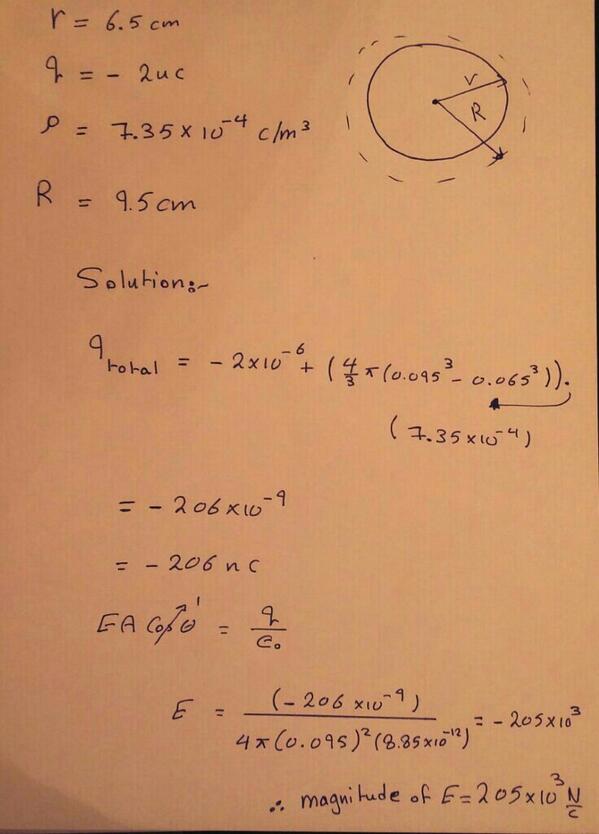 r = 6.5 cm
q = - 2uc
ρ = 7.35 × 10⁻⁴ c/m³
R = 9.5cm
r
R
Solution:~
q total = - 2×10⁻⁶ + (4/3 π (0.095³ - 0.065³)).
(7.35×10⁻⁴)
= - 206×10⁻⁹
= - 206 n c
EA Cosθ 1 = q/ϵ₀
E = (- 206 ×10⁻⁹) / 4π(0.095)²(8.85×10⁻¹²) = - 205×10³
∴ magnitude of E = 205×10³ N/c